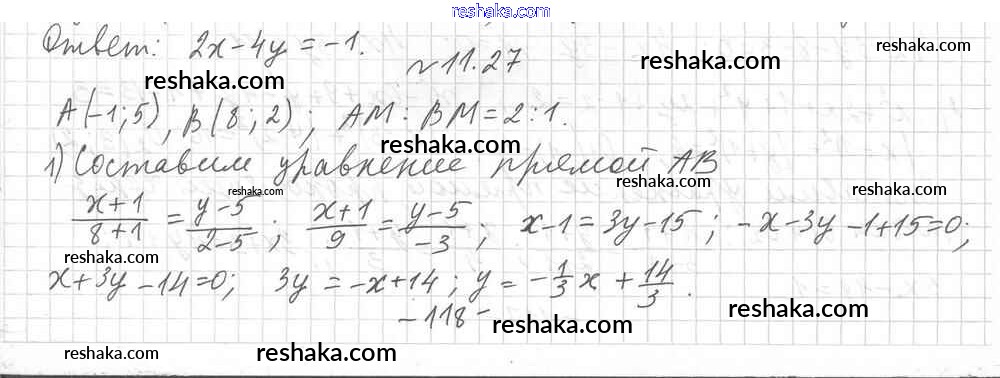 reshaka.com
Ответ: 2x-4y=-1.
reshaka.com reshaka.com reshaka.com
№11.27
A(-1;5), B(8;2); AM:BM=2:1.
reshaka.com
1) Составим уравнение прямой AB
reshaka.com reshaka.com reshaka.com
(x+1)/(8+1)=(y-5)/(2-5); (x+1)/9=(y-5)/(-3); x-1=3y-15; -x-3y-1+15=0;
reshaka.com reshaka.com reshaka.com
x+3y-14=0; 3y=-x+14; y=-1/3x+14/3.
-118-
reshaka.com reshaka.com reshaka.com reshaka.com reshaka.com